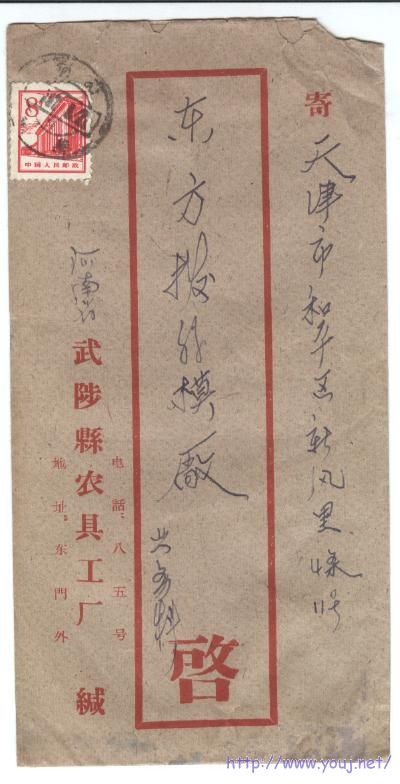 寄
天津市和平区新风里
东方拔丝模厂
业务科
啓
河南省
武陟縣农具工厂 緘
电話：八五号
地址：东門外
8
中国人民邮政
http://www.youj.net/